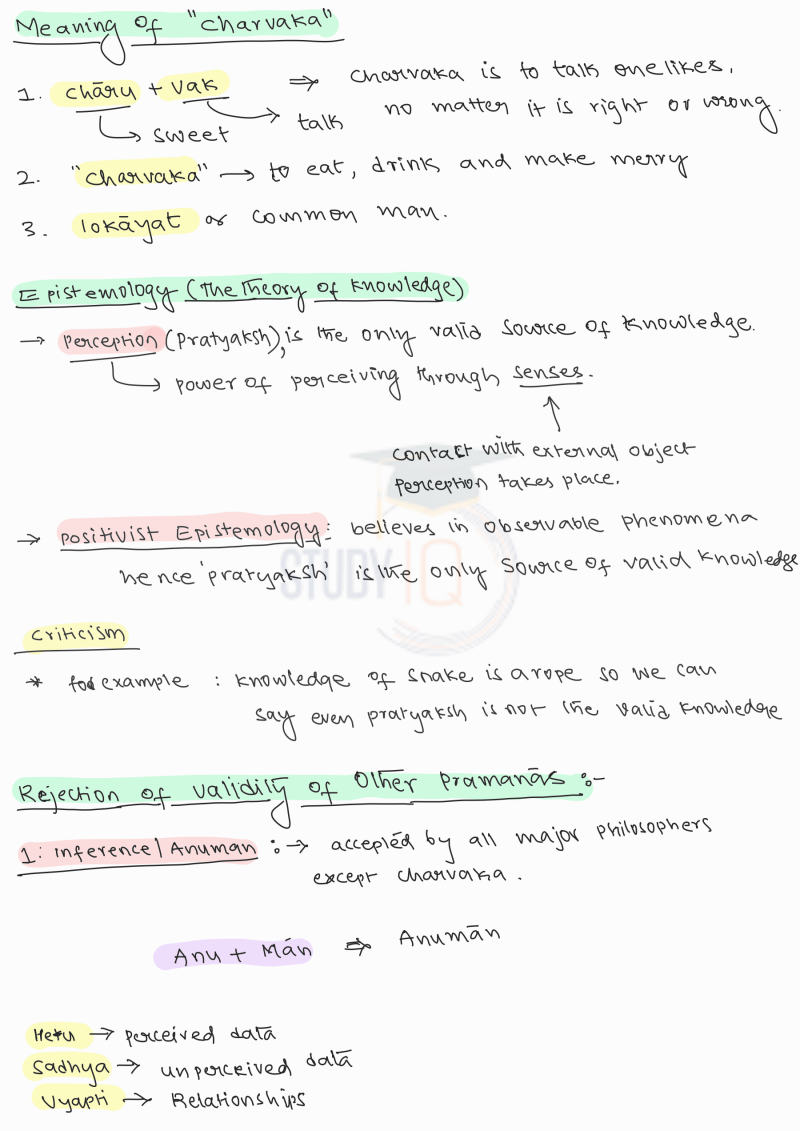 Meaning of "charvaka"
1. chāru + vak ⇒ charvaka is to talk one likes,
no matter it is right or wrong.
sweet talk
2. "charvaka" → to eat, drink and make merry
3. lokāyat or common man.
Epistemology (The Theory of knowledge)
→ Perception (Pratyaksh), is the only valid source of knowledge.
→ power of perceiving through senses.
contact with external object
perception takes place.
→ Positivist Epistemology: believes in observable phenomena
hence 'pratyaksh' is the only source of valid knowledge
STUDY IQ
Criticism
* for example : knowledge of snake is a rope so we can
say even pratyaksh is not the valid knowledge
Rejection of validity of Other Pramanās :-
1: inference/Anuman :→ accepted by all major philosophers
except charvaka.
Anu + Mán ⇒ Anumān
Hetu → perceived data
Sadhya → unperceived data
Vyapti → Relationships